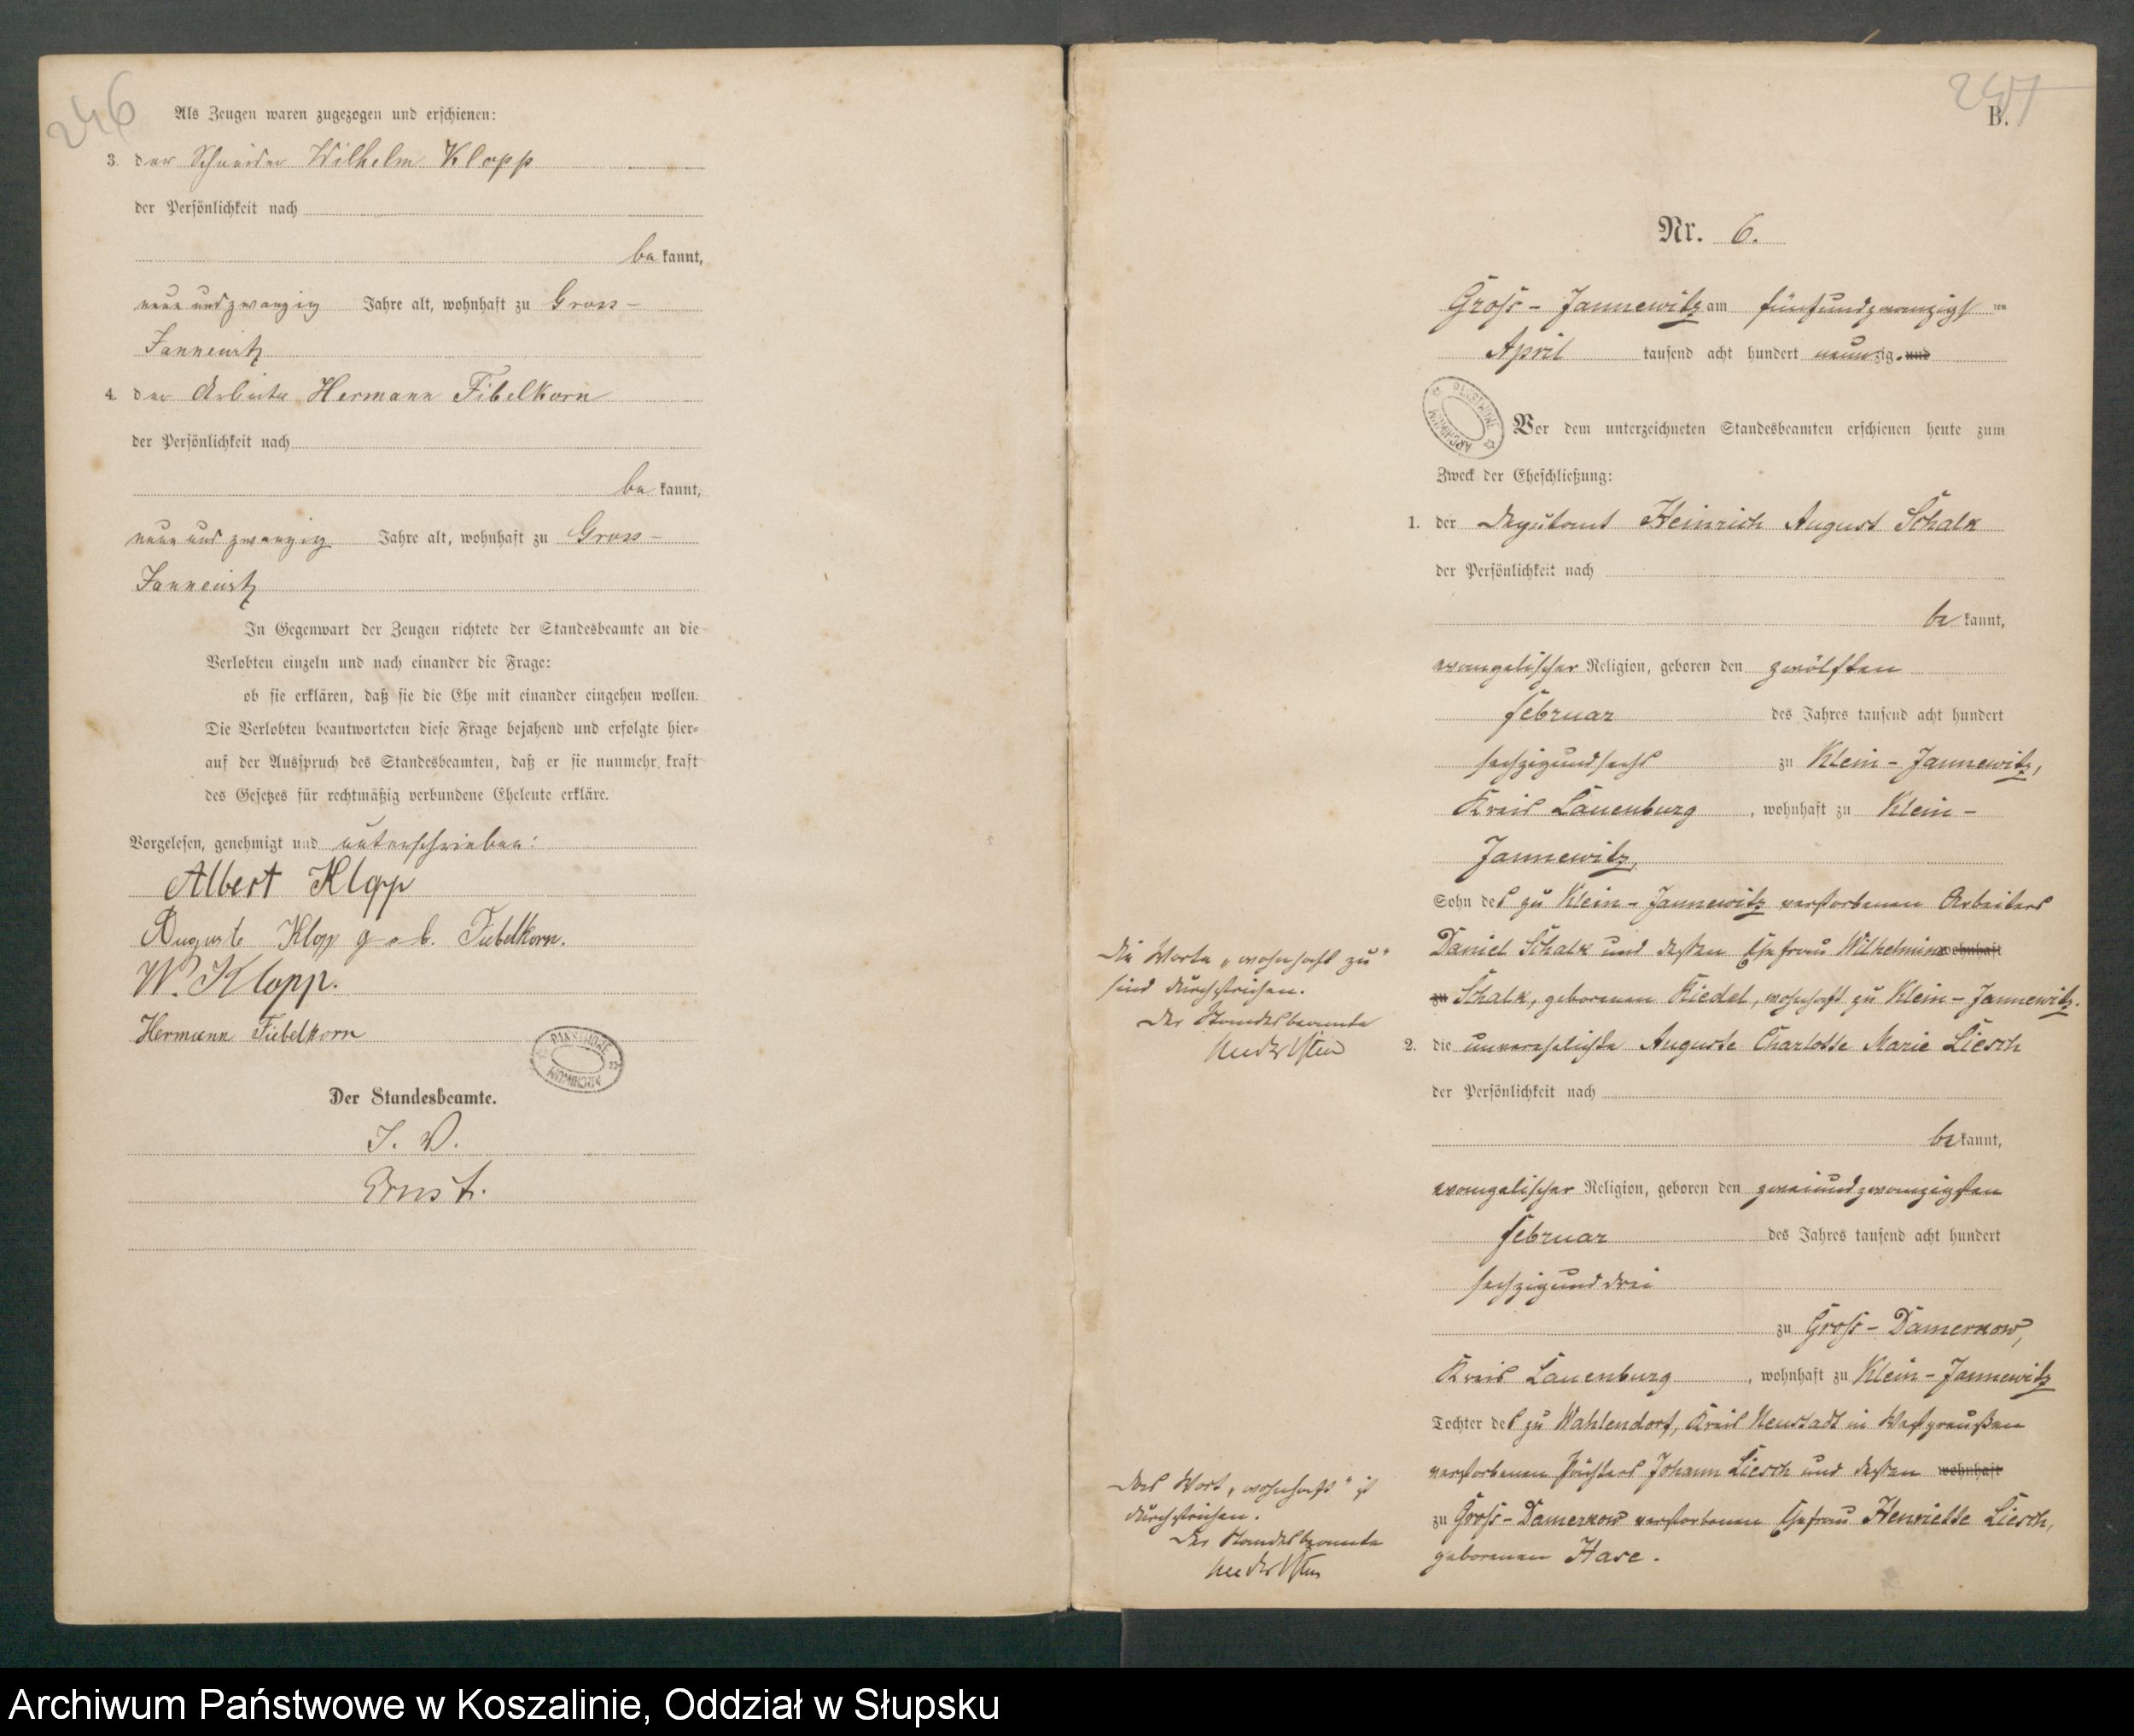 246
Als Zeugen waren zugezogen und erschienen:
3. der Schneider Wilhelm Klopp
der Persönlichkeit nach
be kannt,
neun und zwanzig Jahre alt, wohnhaft zu Gross-
Jannewitz
4. der Arbeiter Hermann Fibelkorn
der Persönlichkeit nach
be kannt,
neun und zwanzig Jahre alt, wohnhaft zu Gross-
Jannewitz
In Gegenwart der Zeugen richtete der Standesbeamte an die
Verlobten einzeln und nach einander die Frage:
ob sie erklären, daß sie die Ehe mit einander eingehen wollen.
Die Verlobten beantworteten diese Frage bejahend und erfolgte hier-
auf der Ausspruch des Standesbeamten, daß er sie nunmehr kraft
des Gesetzes für rechtmäßig verbundene Eheleute erkläre.
Vorgelesen, genehmigt und unterschrieben:
Albert Klopp
Auguste Klopp geb. Fiebelkorn.
W. Klopp.
Hermann Fiebelkorn
ARCHIWUM PAŃSTWOWE
Der Standesbeamte.
I. V.
Ernst.
247
B.
Nr. 6.
Gross-Jannewitz am fünfundzwanzigs ten
April tausend acht hundert neunzig. und
ARCHIWUM PAŃSTWOWE
Vor dem unterzeichneten Standesbeamten erschienen heute zum
Zweck der Eheschließung:
1. der Deputant Heinrich August Schalk
der Persönlichkeit nach
be kannt,
evangelischer Religion, geboren den zwölften
Februar des Jahres tausend acht hundert
sechzigundsechs zu Klein-Jannewitz,
Kreis Lauenburg, wohnhaft zu Klein-
Jannewitz,
Sohn des zu Klein-Jannewitz verstorbenen Arbeiters
Daniel Schalk und dessen Ehefrau Wilhelmine wohnhaft
zu Schalk, geborenen Riedel, wohnhaft zu Klein-Jannewitz.
Die Worte „wohnhaft zu"
sind durchstrichen.
Der Standesbeamte
2. die unverehelichte Auguste Charlotte Marie Liesch
der Persönlichkeit nach
be kannt,
evangelischer Religion, geboren den zweiundzwanzigsten
Februar des Jahres tausend acht hundert
sechzigunddrei
zu Gross-Damerkow,
Kreis Lauenburg, wohnhaft zu Klein-Jannewitz
Tochter des zu Wahlendorf, Kreis Neustadt in Westpreußen
verstorbenen Pächters Johann Liesch und dessen wohnhaft
zu Gross-Damerkow verstorbenen Ehefrau Henriette Liesch,
geborenen Hase.
Das Wort „wohnhaft" ist
durchstrichen.
Der Standesbeamte
Archiwum Państwowe w Koszalinie, Oddział w Słupsku